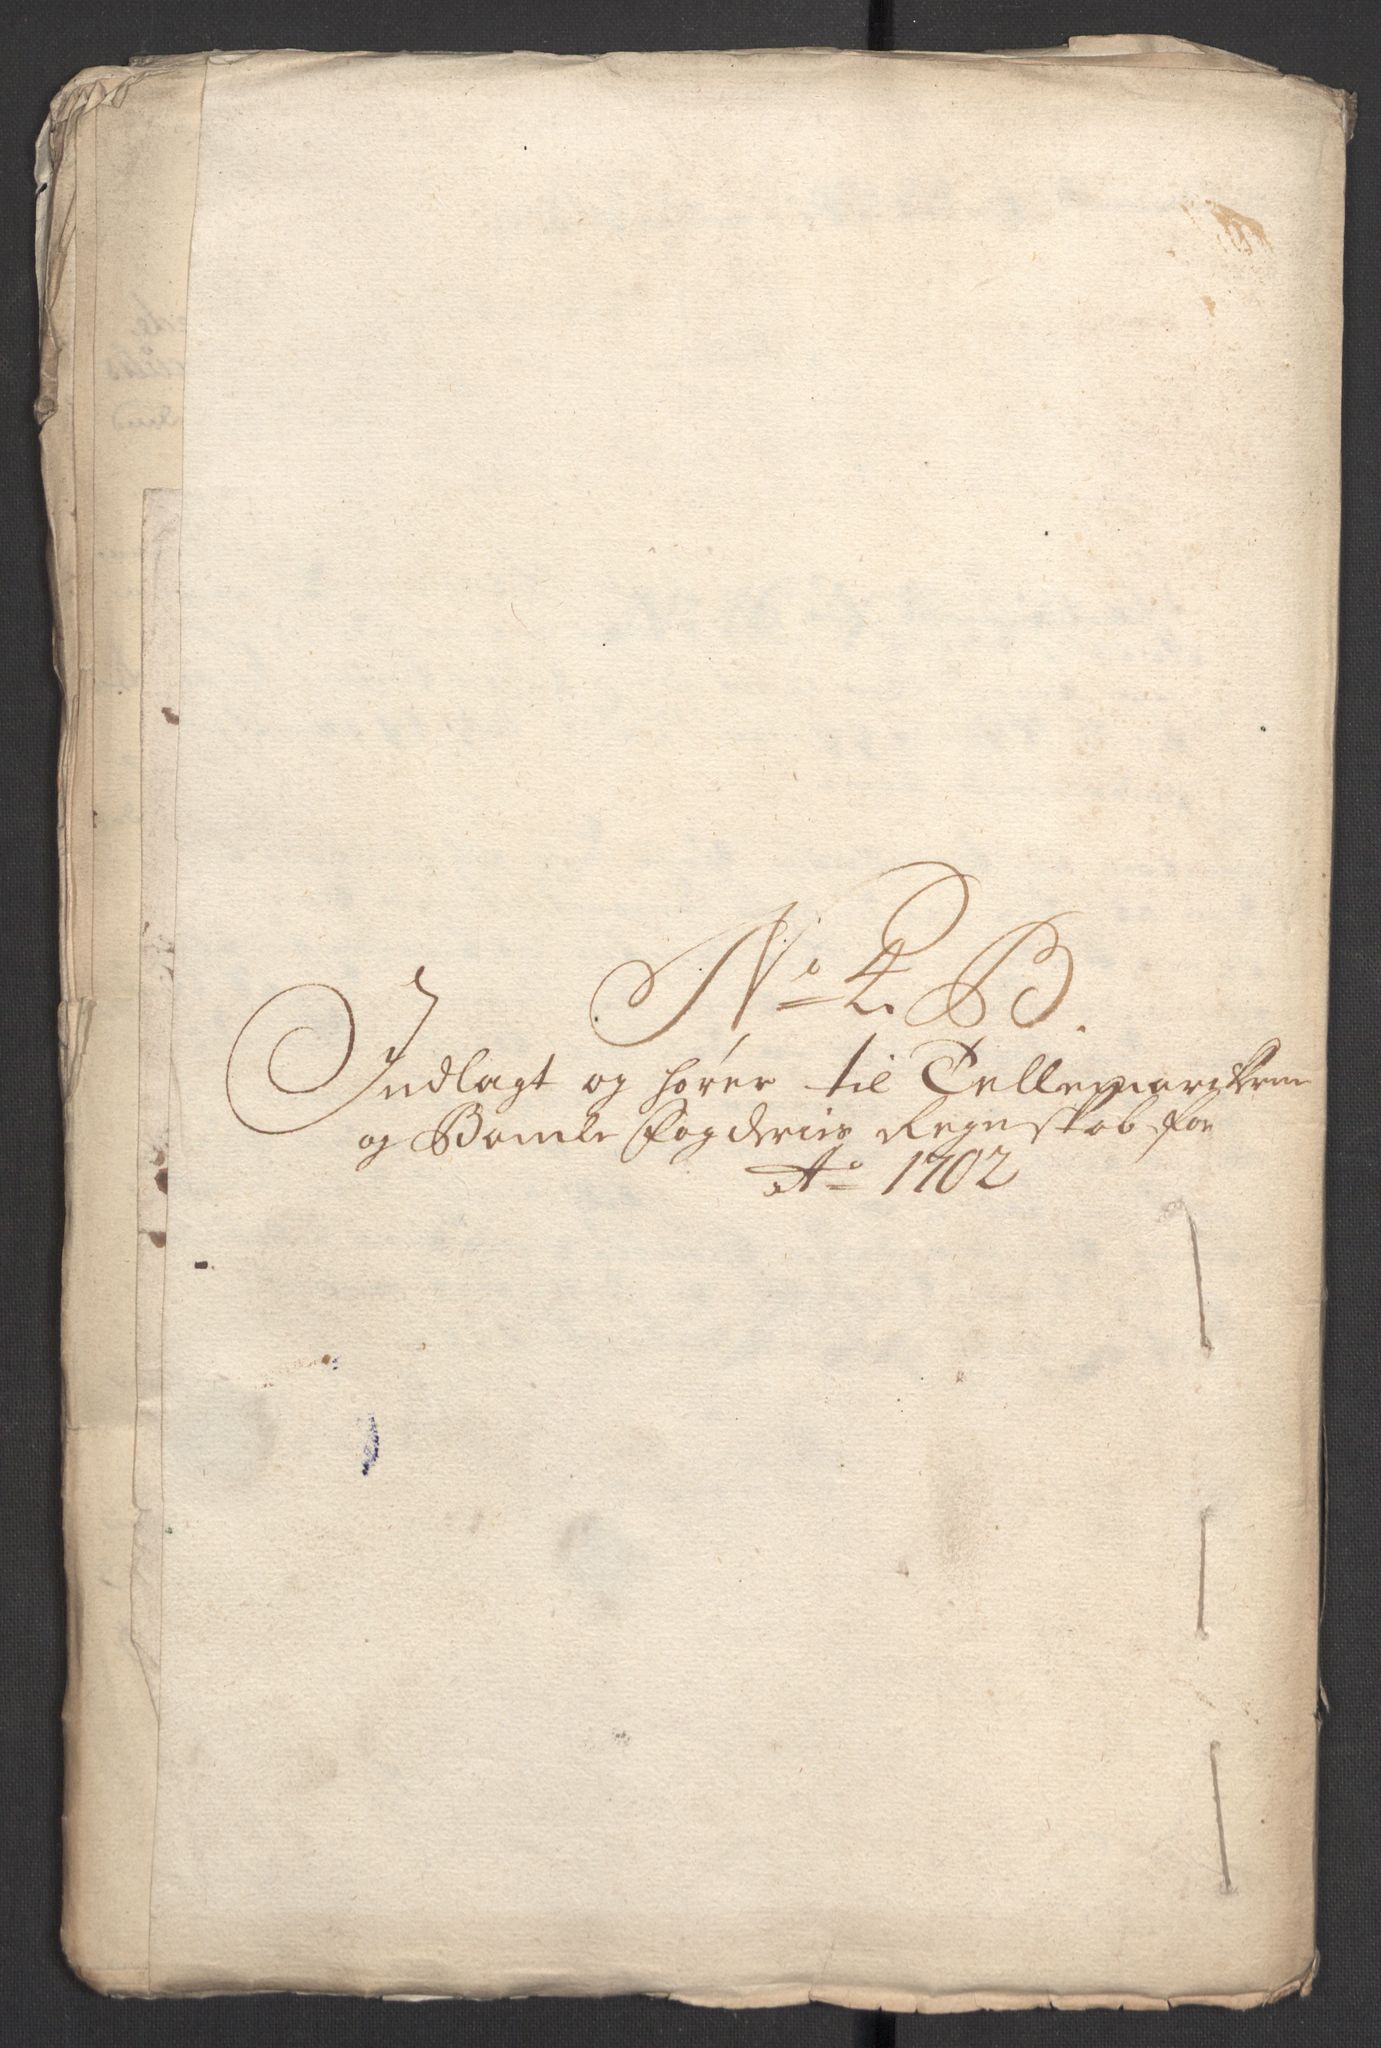 No 4. B.
Indlagt og hører til Tellemarckens
og Bamle Fogderies Regnskab for
Ao 1702